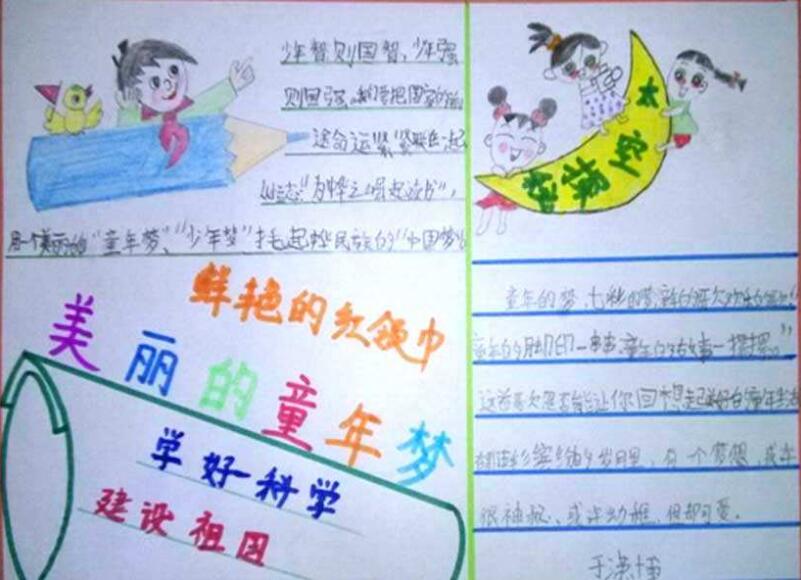 少年智则国智、少年强
则国强。我们要把国家的前
途命运紧紧联在一起
立志"为中华之崛起读书",
用一个美丽的"童年梦"、"少年梦"托起中华民族的"中国梦"
鲜艳的红领巾
美丽的童年梦
学好科学
建设祖国
太空探梦
童年的梦,七彩的梦,童年的歌欢乐的歌
童年的脚印一串串,童年的故事一摞摞。"
这首歌是否能让你回想起美好的童年生活
缤纷的岁月里,有一个梦想,或许
很神秘、或许幼稚、但却可爱。